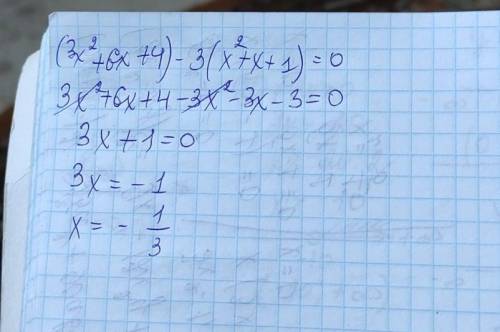 (3x²+6x+4) - 3(x²+x+1) = 0
3x²+6x+4-3x²-3x-3=0
3x+1=0
3x=-1
x= - 1/3